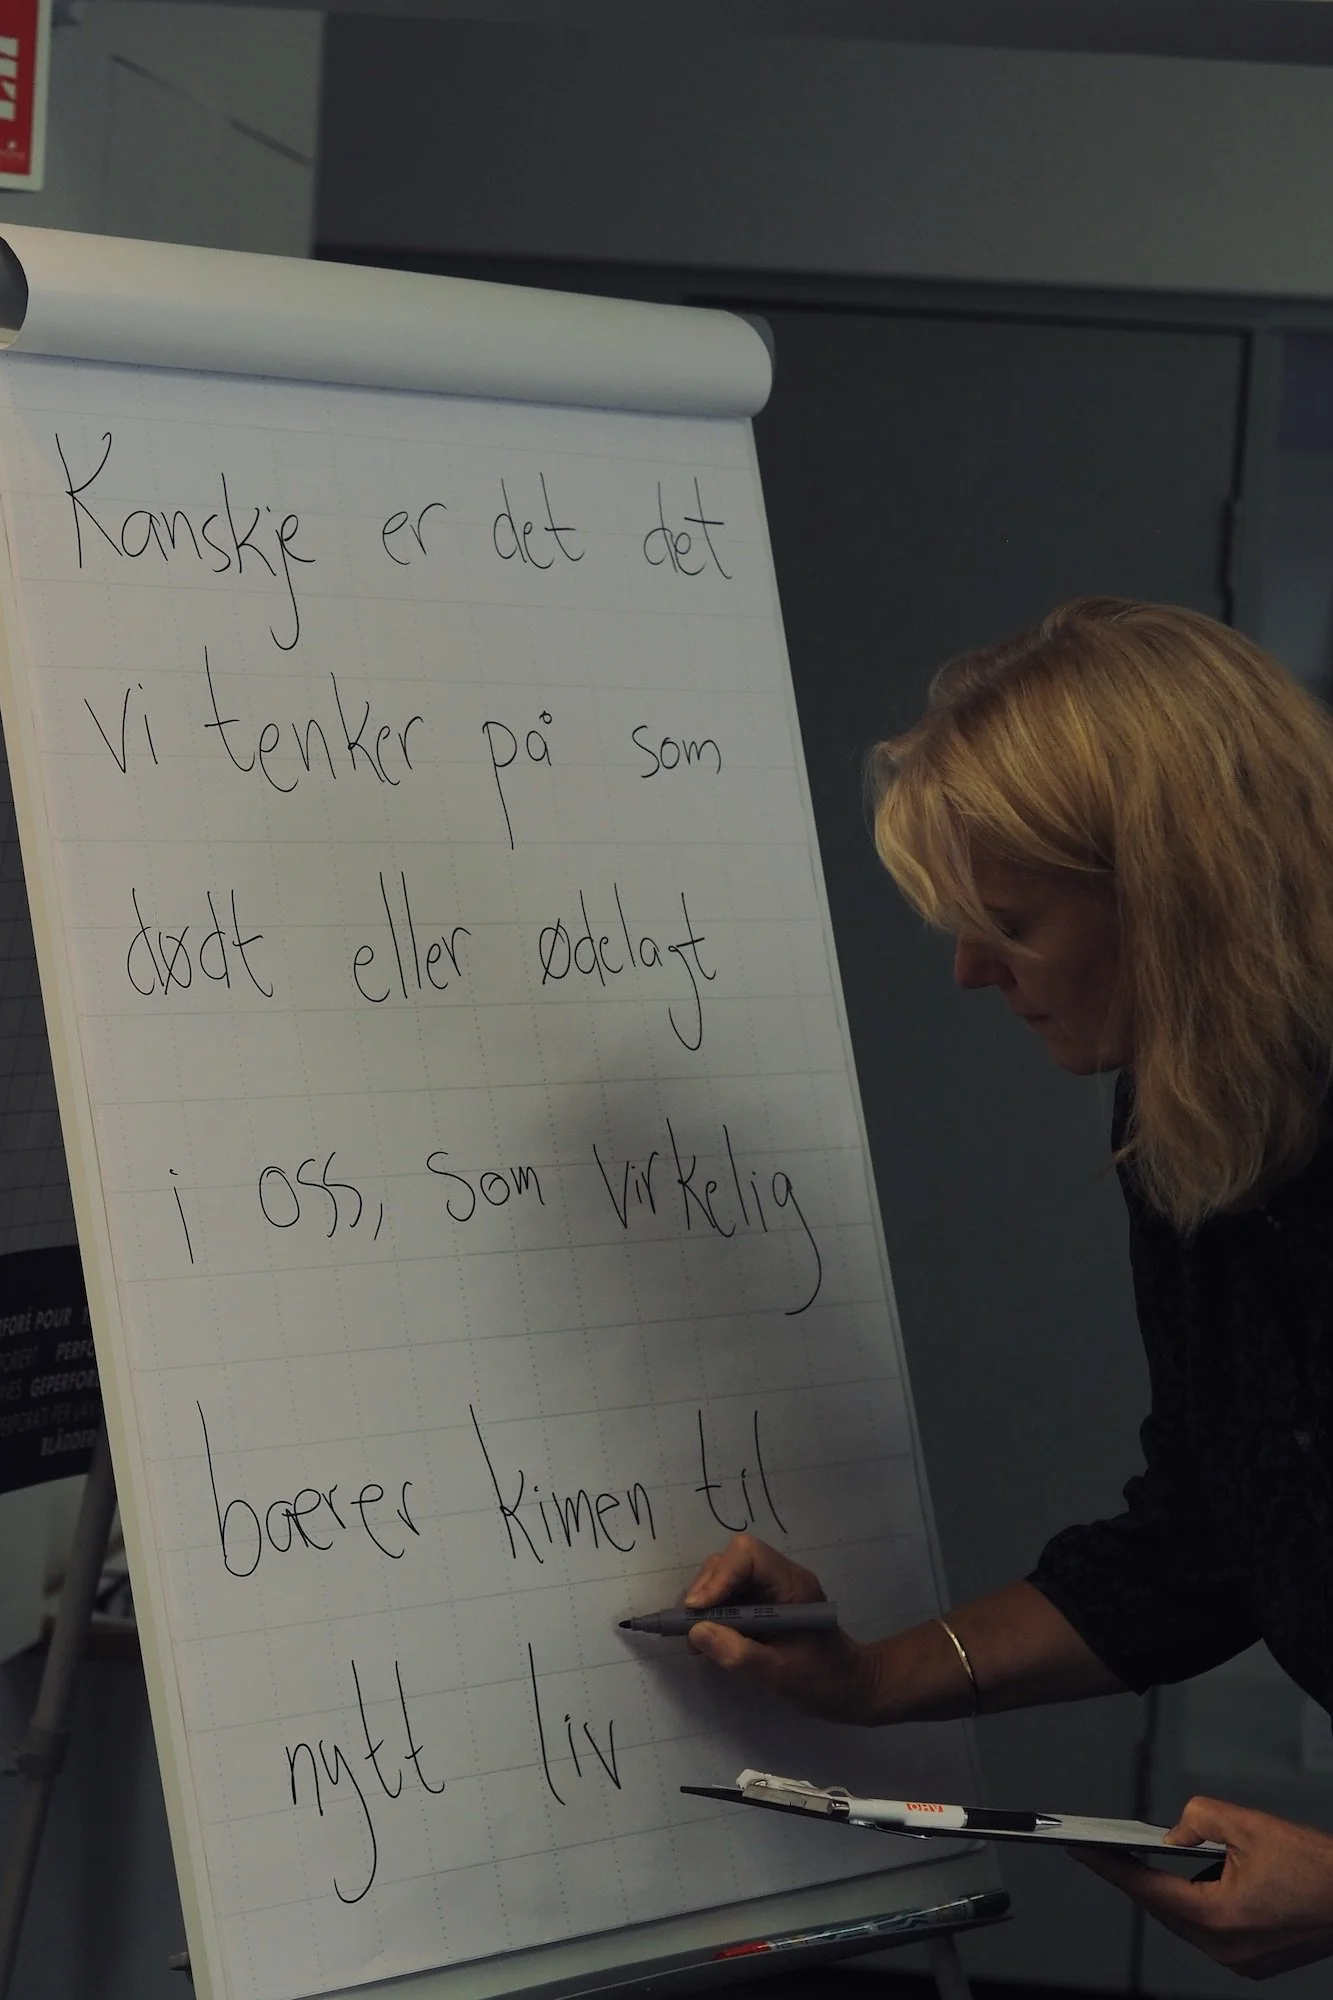 Kanskje er det det
vi tenker på som
dødt eller ødelagt
i oss, som virkelig
bærer kimen til
nytt liv
FORÉ POUR
PERFO
GEPERFOR
BLÄDDER